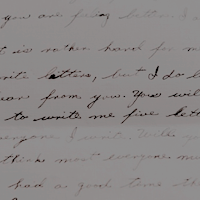 you are fine letter.
t is rather hard for m
rite letters, but I do l
ear from you. You wil
to write me five lett
everyone I write. With y
think most everyone
had a good time th